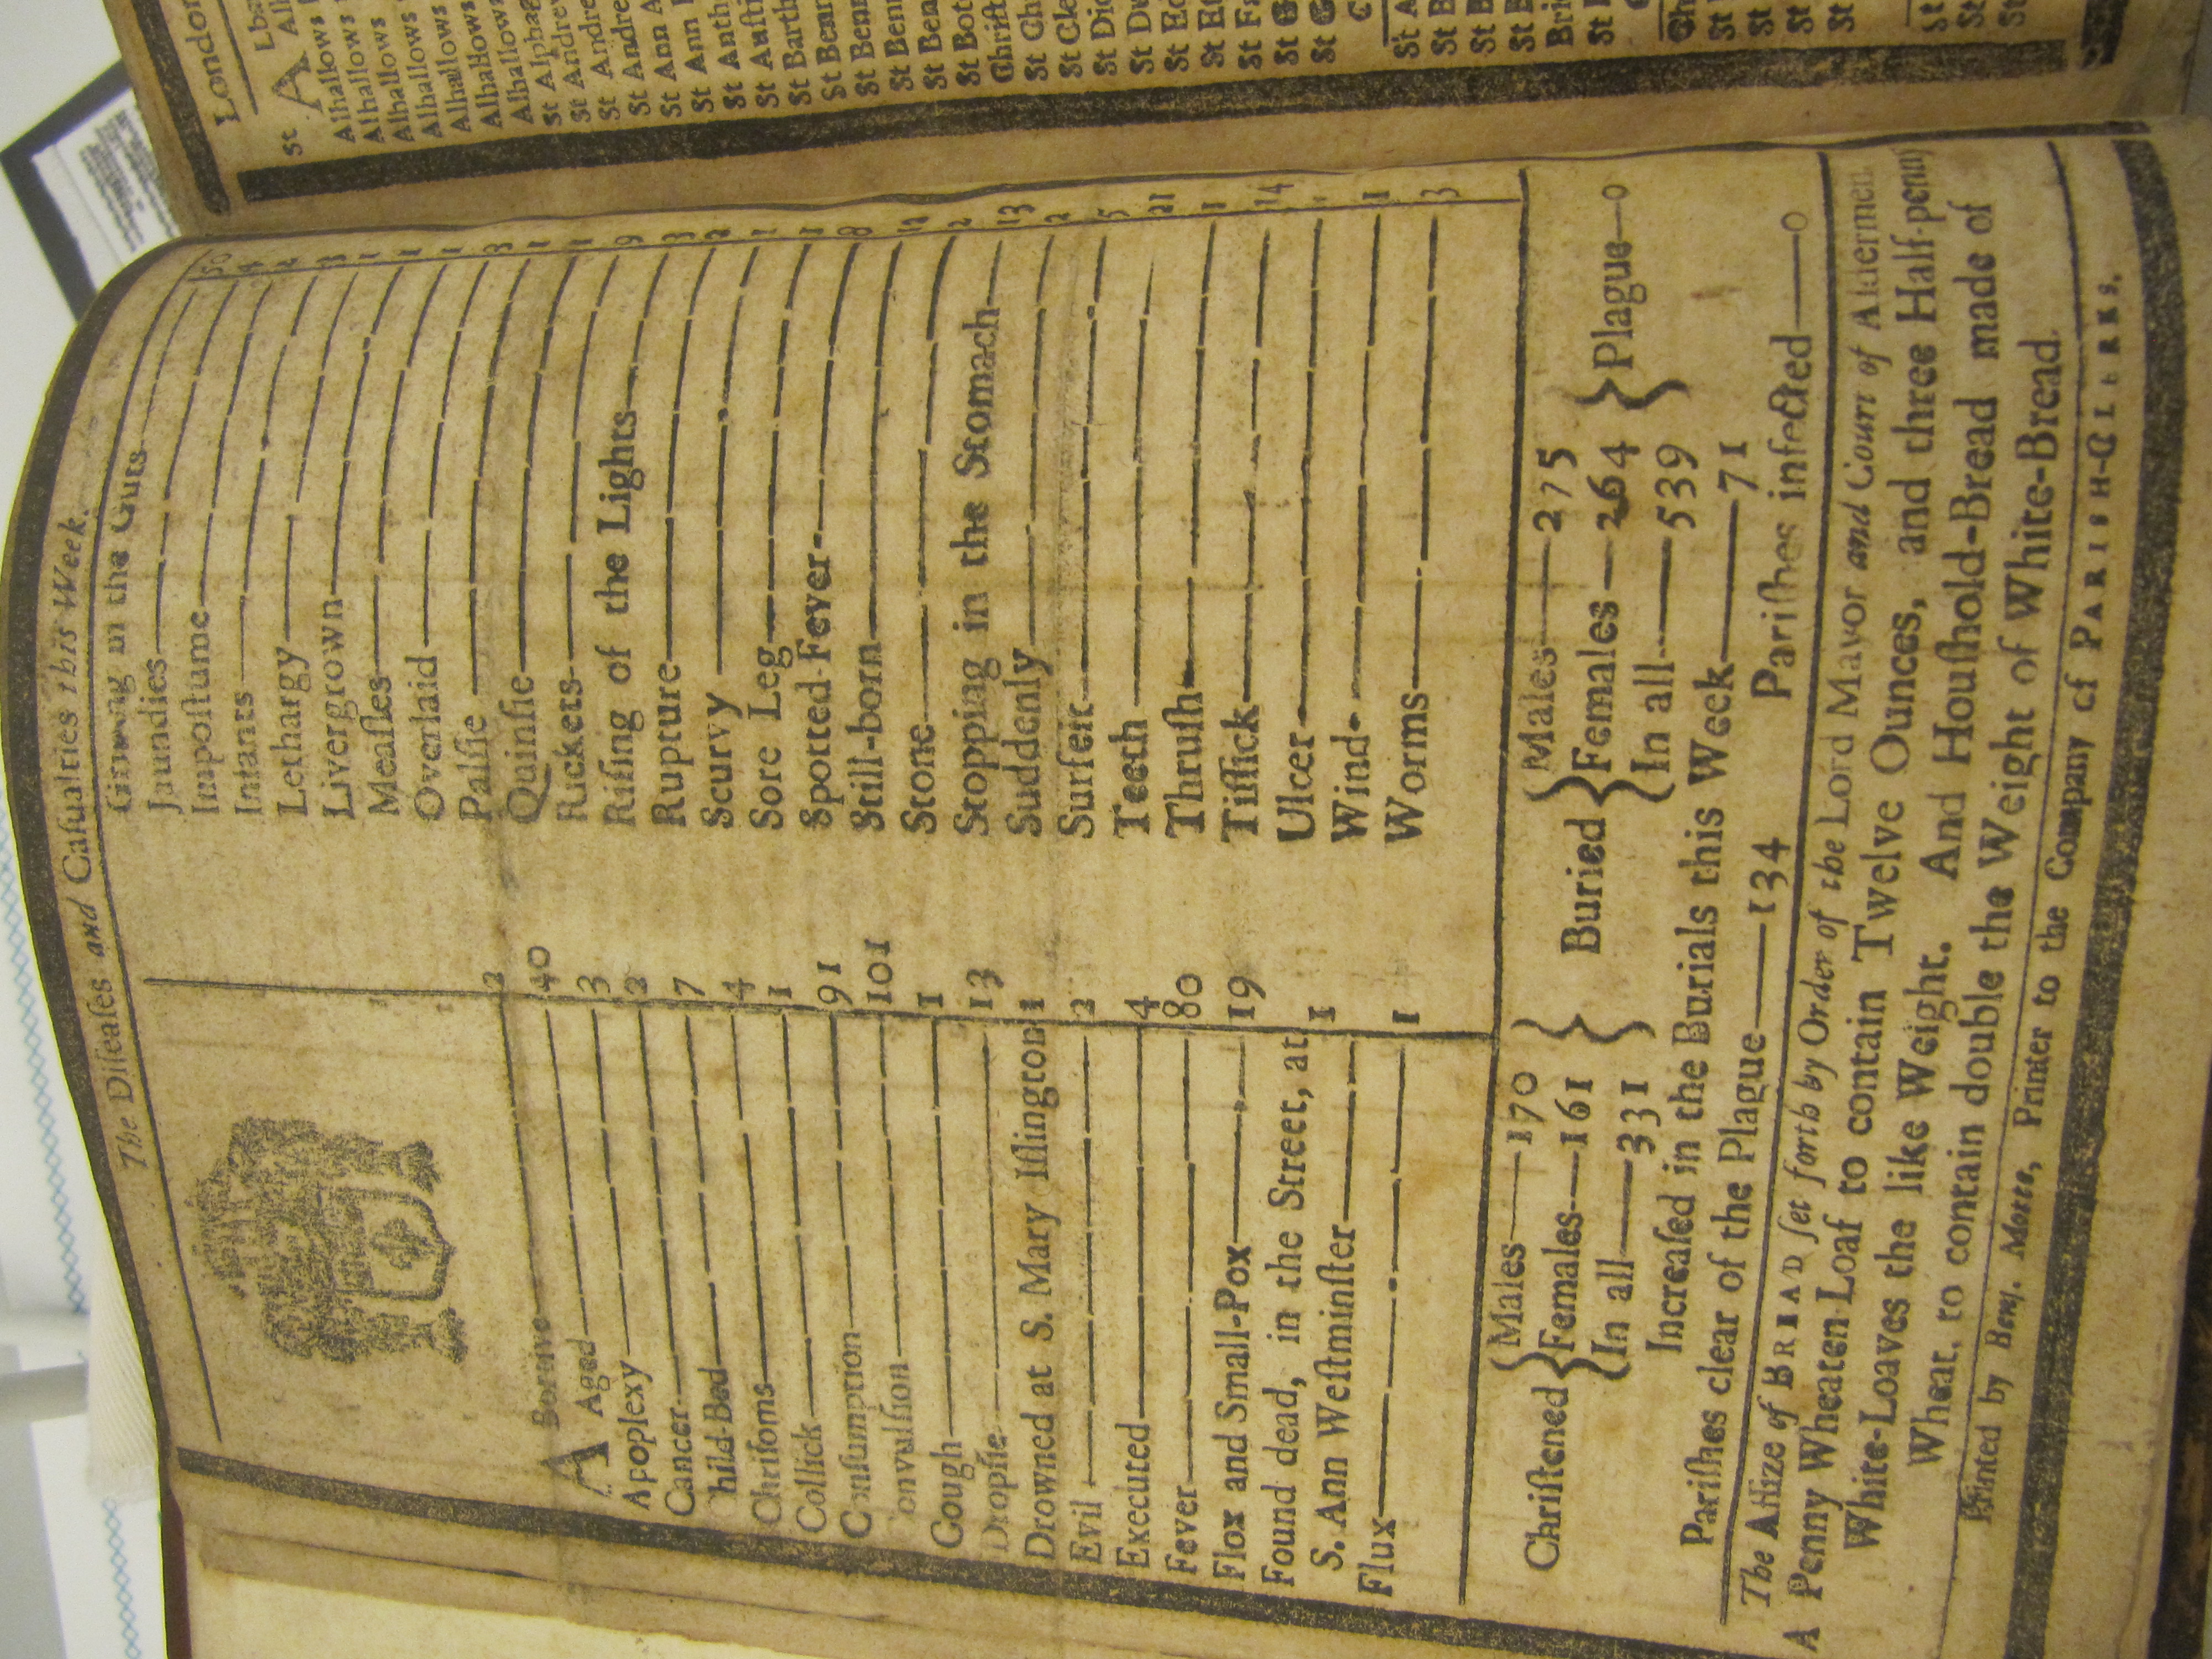 The Diſeaſes and Caſualties this Week.
A Bortive 2
Aged 40
Apoplexy 3
Cancer 2
Child-Bed 7
Chriſoms 4
Collick 1
Conſumption 91
Convulſion 101
Cough 1
Dropſie 13
Drowned at S. Mary Iſlington 1
Evil 2
Executed 4
Fever 80
Flox and Small-Pox 19
Found dead, in the Street, at
S. Ann Weſtminſter 1
Flux 1
Griping in the Guts 50
Jaundies 4
Impoſtume 2
Infants 3
Lethargy 1
Livergrown 1
Meaſles 1
Overlaid 3
Palſie 1
Quinſie 1
Rickets 9
Riſing of the Lights 3
Rupture 2
Scurvy 1
Sore Leg 1
Spotted-Fever 8
Still-born 12
Stone 2
Stopping in the Stomach 13
Suddenly 2
Surfeit 5
Teeth 21
Thruſh 1
Tiſſick 14
Ulcer 1
Wind 1
Worms 3
Chriſtened { Males 170
Females 161
In all 331 }
Buried { Males 275
Females 264
In all 539 } Plague 0
Increaſed in the Burials this Week 71
Pariſhes clear of the Plague 134 Pariſhes infected 0
The Aſſize of BREAD ſet forth by Order of the Lord Mayor and Court of Aldermen
A Penny Wheaten-Loaf to contain Twelve Ounces, and three Half-penny
White-Loaves the like Weight. And Houſhold-Bread made of
Wheat, to contain double the Weight of White-Bread.
Printed by Benj. Motte, Printer to the Company of PARISH-CLERKS.
London
St A Lba
Alhallows
Alhallows
Alhallows
Alhallows
Alhallows
Alhallows
Alhallows
St Alphag
St Andrew
St Andre
St Andre
St Ann A
St Ann
St Anth
St Auſti
St Barth
St Benn
St Benn
St Benn
St Bot
Chriſt
St Ch
St Cle
St Dio
St Du
St Ed
St Et
St Fr
St G
St G